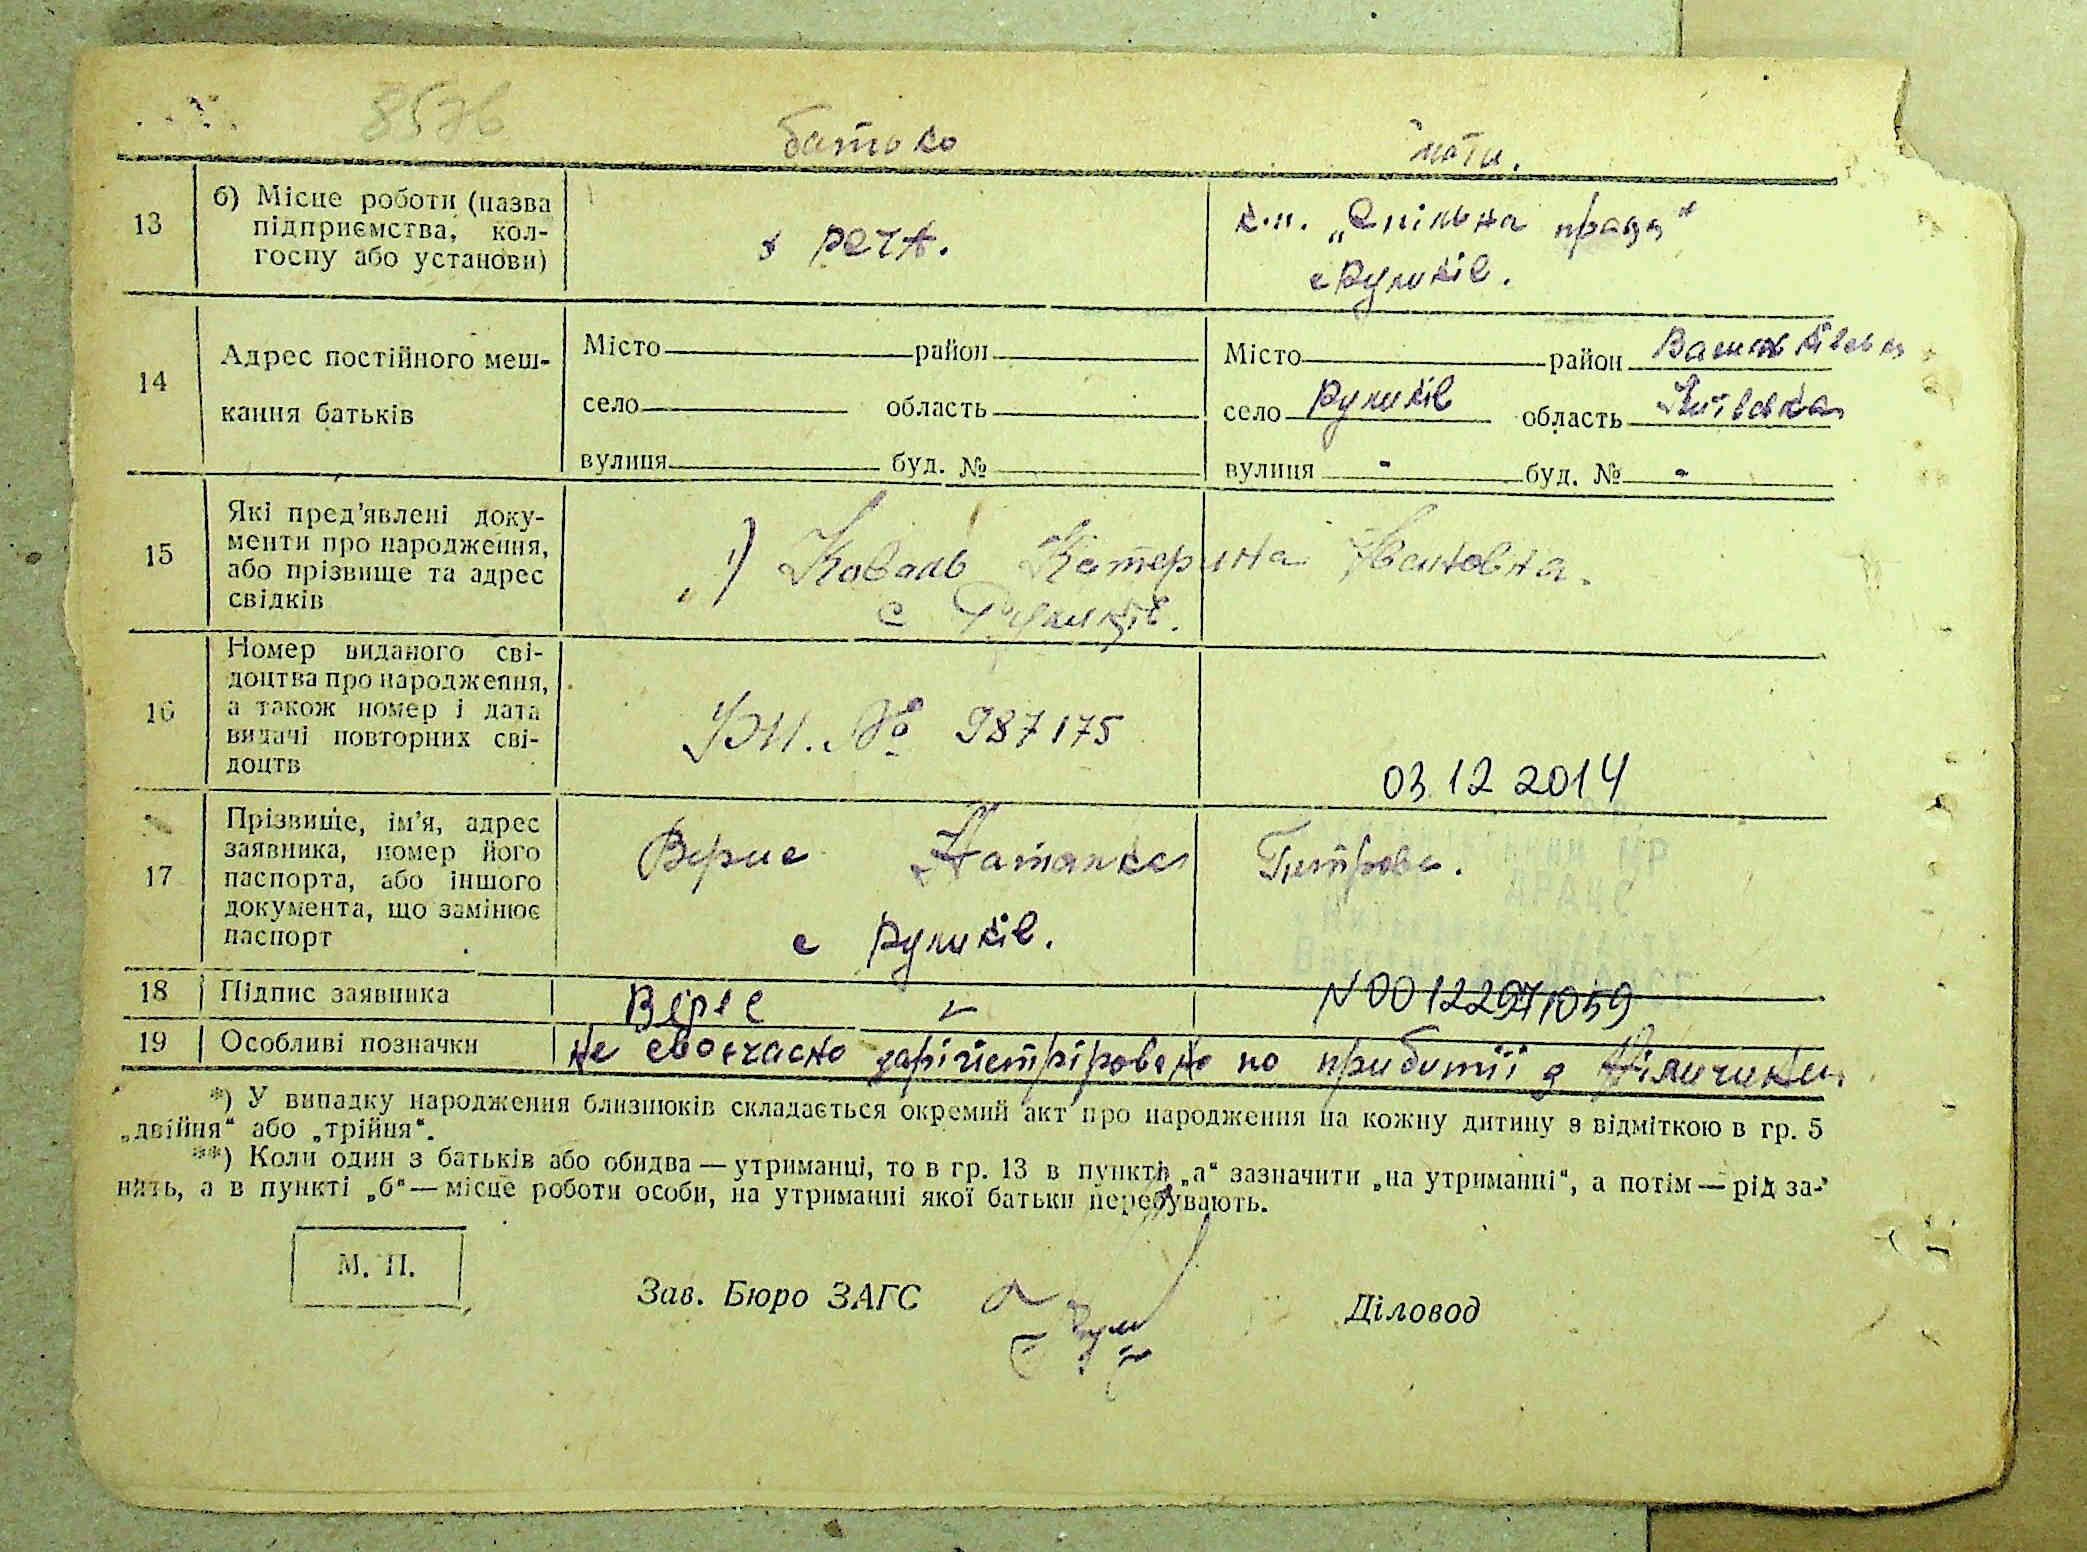 8576
батько мати.
13 б) Місце роботи (назва підприємства, колгоспу або установи)
к.п. „Спільна праця"
с Руликів.
14 Адрес постійного меш-
кання батьків
Місто район
село область
вулиця буд. №
Місто район Васильківськ
село Руликів область Київська
вулиця - буд. № -
15 Які пред'явлені доку-
менти про народження,
або прізвище та адрес
свідків
1) Коваль Катерина Івановна.
с Руликів.
16 Номер виданого сві-
доцтва про народження,
а також номер і дата
видачі повторних сві-
доцтв
№ 987175
03.12 2014
17 Прізвище, ім'я, адрес
заявника, номер його
паспорта, або іншого
документа, що замінює
паспорт
Наталка Петровн.
с Руликів.
18 Підпис заявника
N00122971059
19 Особливі позначки
не своєчасно зарігістріровано по прибутії з Німичини
*) У випадку народження близнюків складається окремий акт про народження на кожну дитину з відміткою в гр. 5
„двійня" або „трійня".
**) Коли один з батьків або обидва — утриманці, то в гр. 13 в пункті „а" зазначити „на утриманні", а потім — рід за-
нять, а в пункті „б" — місце роботи особи, на утриманні якої батьки перебувають.
М. П.
Зав. Бюро ЗАГС Діловод